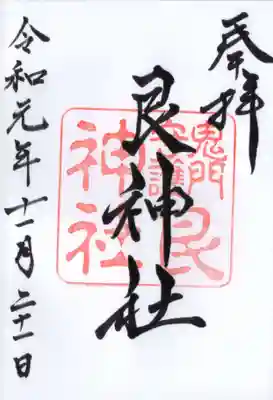 奉拝
鬼門
守護
艮
神社
艮神社
令和元年十一月二十一日